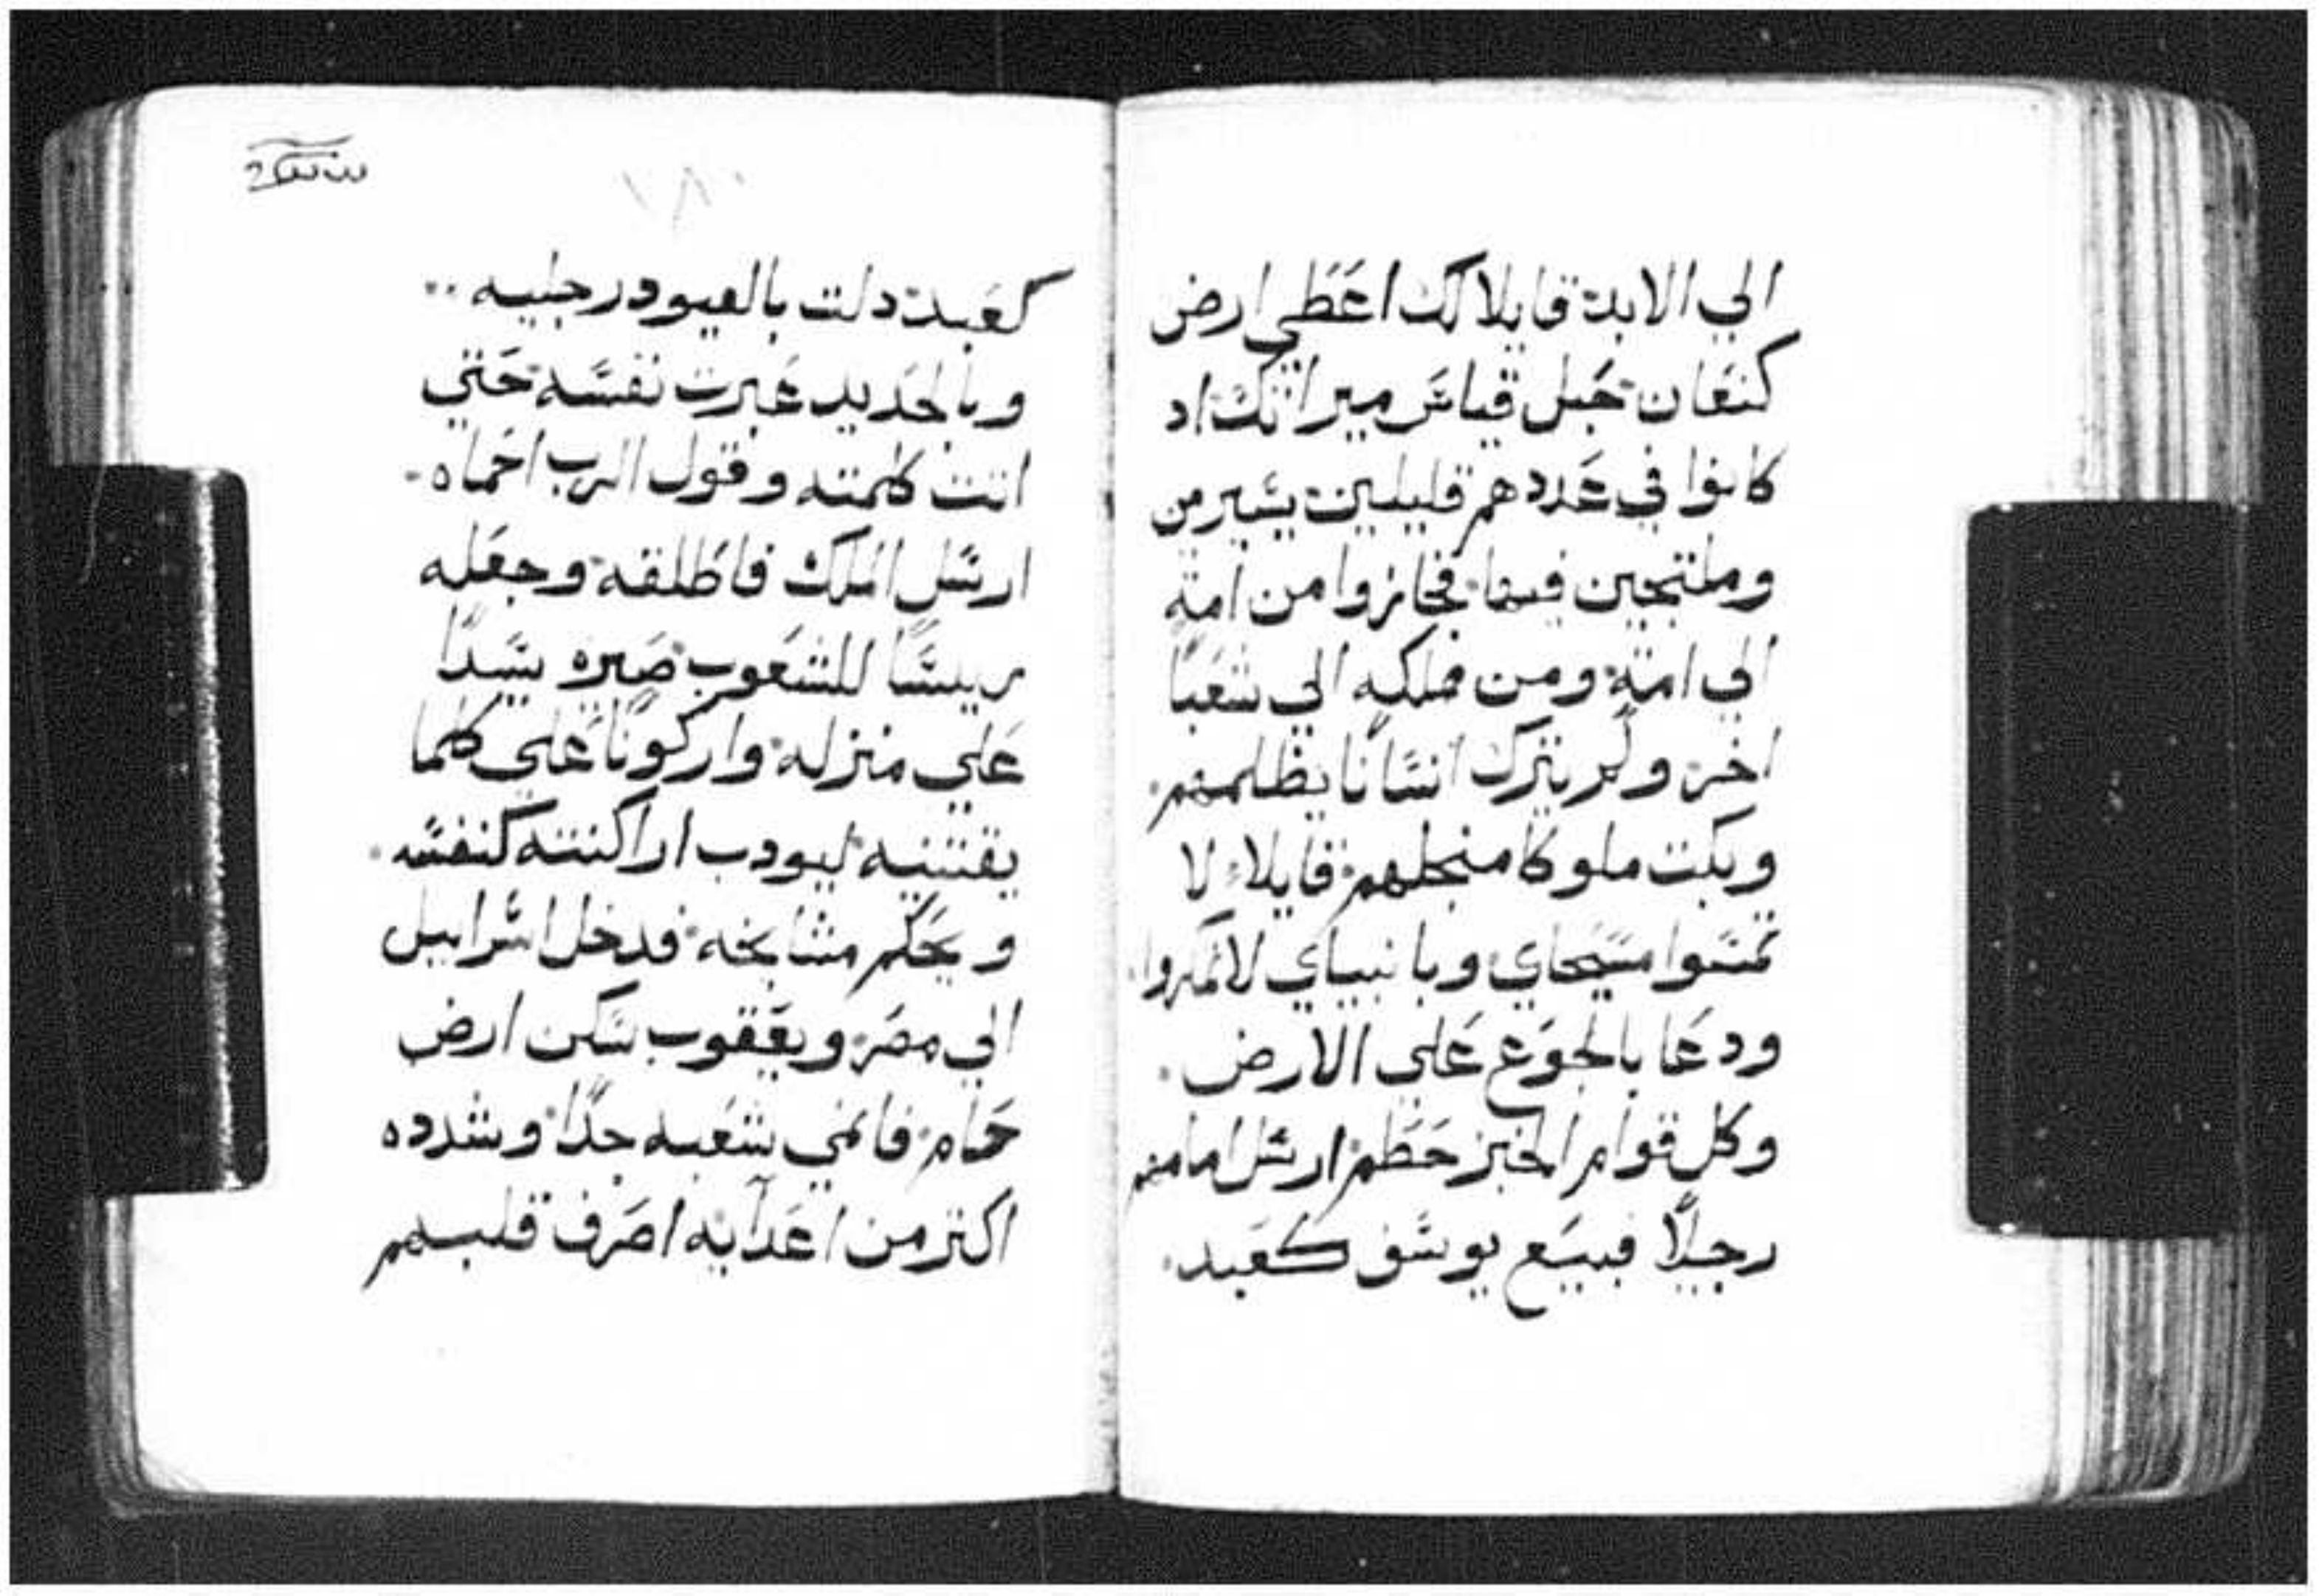 الي الابد قايلا لك اعطي ارض
كنعان حبل قياس ميراثك اد
كانوا في عددهم قليلين يسير من
وملتجين فيها فجازوا من امة
الي امة ومن مملكه الي شعبا
اخر ولم يترك انسانا يظلمهم
وبكت ملوكا منجلهم قايلا لا
تمسوا مسيحاي وبانبياي لا تمكروا
ودعا بالجوع علي الارض
وكل قوام الخبز حطم ارسل امامهم
رجلا فبيع يوسف كعبد
١٨٠
كعبد دلت بالقيود رجليه
وبالحديد عبرت نفسه حتي
اتت كلمته وقول الرب احماه
ارسل الملك فاطلقه وجعله
رييسا للشعوب صيره سيدا
علي منزله واركونا علي كلما
يقتنيه ليودب اراكنته كنفسه
ويحكم مشايخه فدخل اسراييل
الي مصر ويعقوب سكن ارض
حام فانمي شعبه جدا وشدده
اكتر من اعدآيه اصرف قلبهم